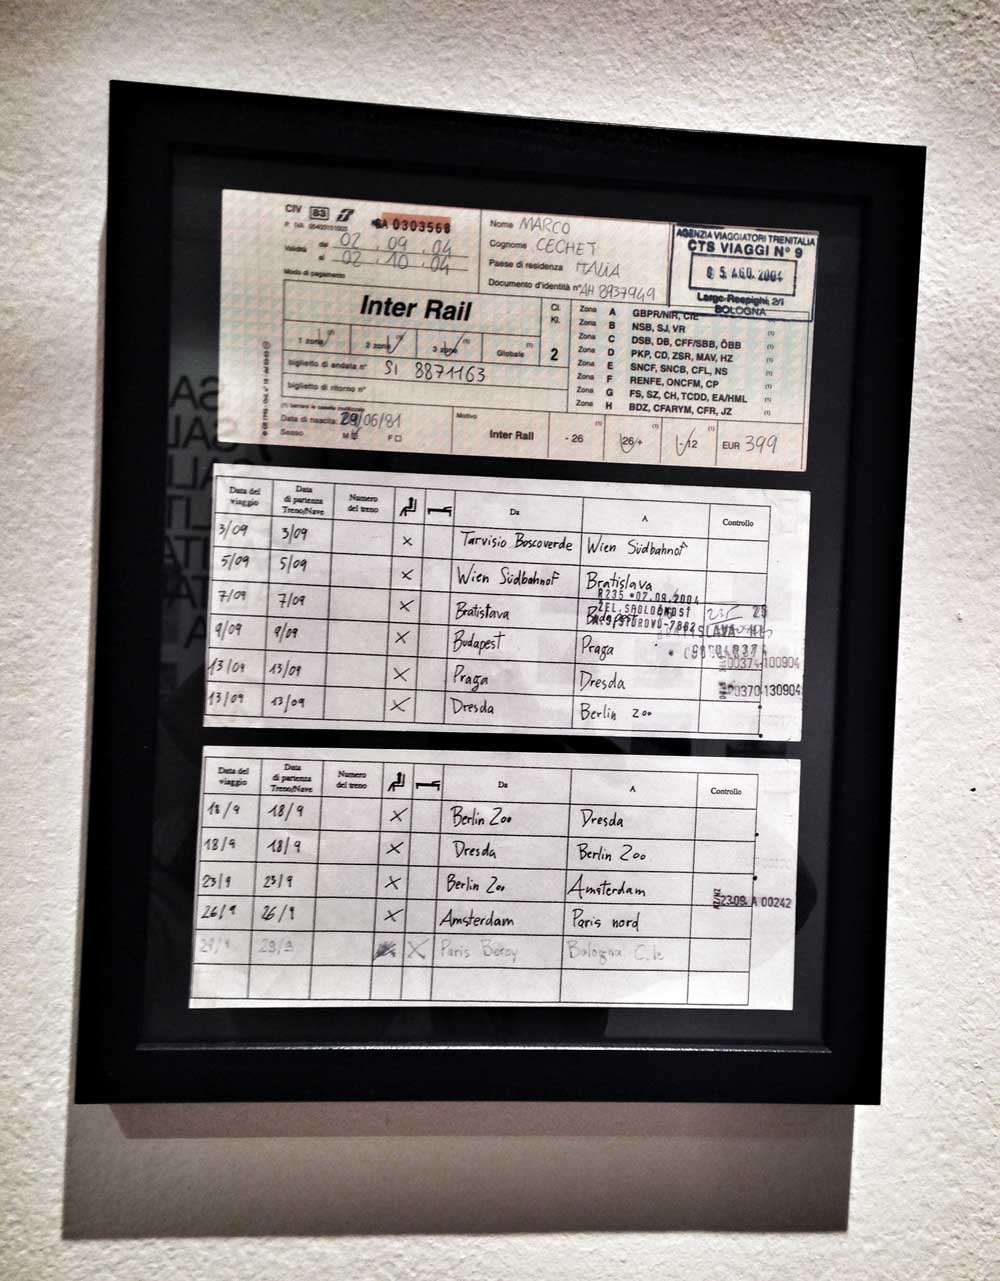 CIV 83 SA 0303568
Validità dal 02 . 09 . 04
al 02 . 10 . 04
Modo di pagamento
Nome MARCO
Cognome CECHET
Paese di residenza ITALIA
Documento d'identità n° AH 8937949
AGENZIA VIAGGIATORI TRENITALIA
CTS VIAGGI N° 9
0 5 AGO. 2004
Largo Respighi, 2/i
BOLOGNA
Inter Rail
Cl.
Kl.
2
1 zona (1) 2 zone (1) 3 zone (1) Globale (1)
biglietto di andata n° SI 8871163
biglietto di ritorno n°
Zona A GBPR/NIR, CIE
Zona B NSB, SJ, VR (1)
Zona C DSB, DB, CFF/SBB, ÖBB (1)
Zona D PKP, CD, ZSR, MAV, HZ (1)
Zona E SNCF, SNCB, CFL, NS (1)
Zona F RENFE, ONCFM, CP (1)
Zona G FS, SZ, CH, TCDD, EA/HML (1)
Zona H BDZ, CFARYM, CFR, JZ (1)
Data di nascita: 29/06/81
Sesso M F
Motivo
Inter Rail - 26 (1) 26/+ (1) -/12 (1) EUR 399
Data del viaggio Data di partenza Treno/Nave Numero del treno Da A Controllo
3/09 3/09 x Tarvisio Boscoverde Wien Südbahnof
5/09 5/09 x Wien Südbahnof Bratislava
R235 *07.09.2004
ZEL.SPOLOČNOSŤ
7/09 7/09 x Bratislava Budapest
9/09 9/09 x Budapest Praga
00374-100904
13/09 13/09 x Praga Dresda
00370-130904
13/09 13/09 x Dresda Berlin Zoo
Data del viaggio Data di partenza Treno/Nave Numero del treno Da A Controllo
18/9 18/9 x Berlin Zoo Dresda
18/9 18/9 x Dresda Berlin Zoo
23/9 23/9 x Berlin Zoo Amsterdam
23.09. A 00242
26/9 26/9 x Amsterdam Paris nord
29/9 29/9 x Paris Bercy Bologna C.le